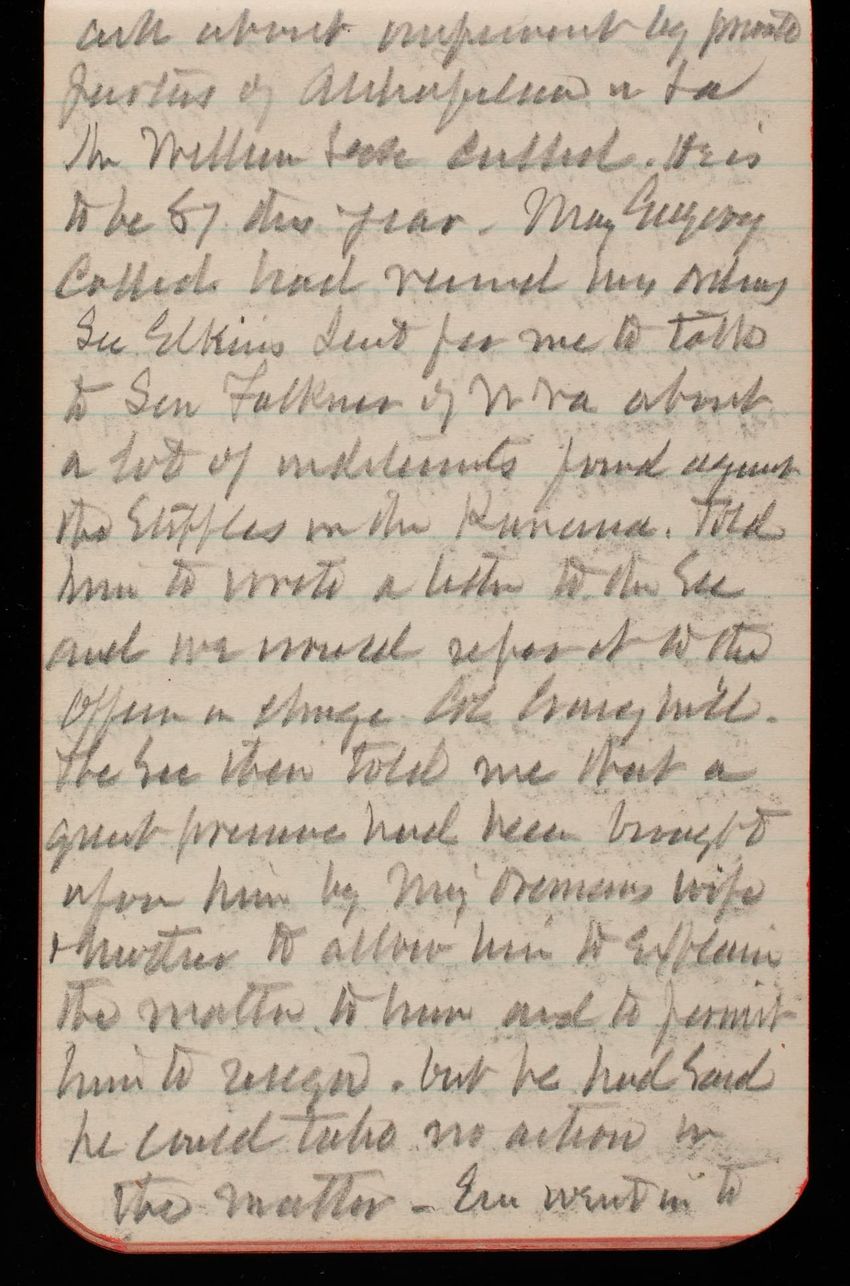 ask about improvement by private
parties of Atchafalaya in La
Mr William called. He is
to be 87 this year. Maj Gregory
Called had received his orders
Sec Elkins Sent for me to talk
to Sen Falkner of W Va about
a lot of indictments found against
the in the Kanawha. Told
him to write a letter to the Sec
and we would refer it to the
Officer in charge Col Craighill.
The Sec then told me that a
great pressure had been brought
upon him by Maj wife
& to allow him to explain
the matter to him and to permit
him to resign. but he had said
he could take no action in
the matter - went in to